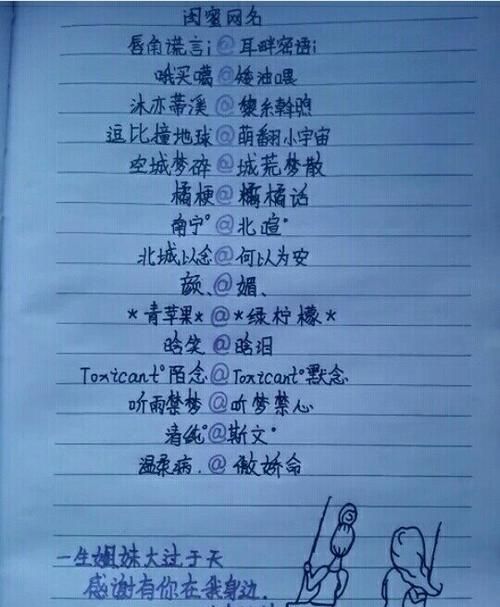 闺蜜网名
唇角谎言i@耳畔密语i
哦买噶@矮油喂
沐亦蒂溪@黎糸斡煦
逗比撞地球@萌翻小宇宙
空城梦碎@城荒梦散
橘梗@橘话
南宁°@北喧°
北城以念@何以为安
颜、@媚、
*青苹果*@*绿柠檬*
晗笑@晗泪
Toxicant°陌念@Toxicant°默念
听雨禁梦@听梦禁心
清纯°@斯文°
温柔病.@傲娇命
一生姐妹大过于天
感谢有你在我身边.